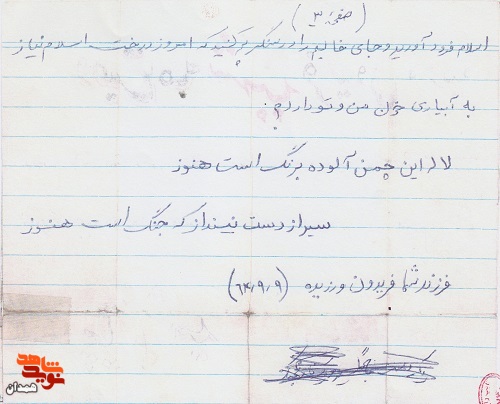 (صفحه ۳)
اسلام فرود آورید و جای خالیم را در سنگر پر کنید که امروز درخت اسلام نیاز
به آبیاری خون من و تو دارد.
لاله این چمن آلوده برنگ است هنوز
سپر از دست نینداز که جنگ است هنوز
فرزند شما فریدون ورزیده (۶۴٫۹٫۹)
نوید شاهد
همدان